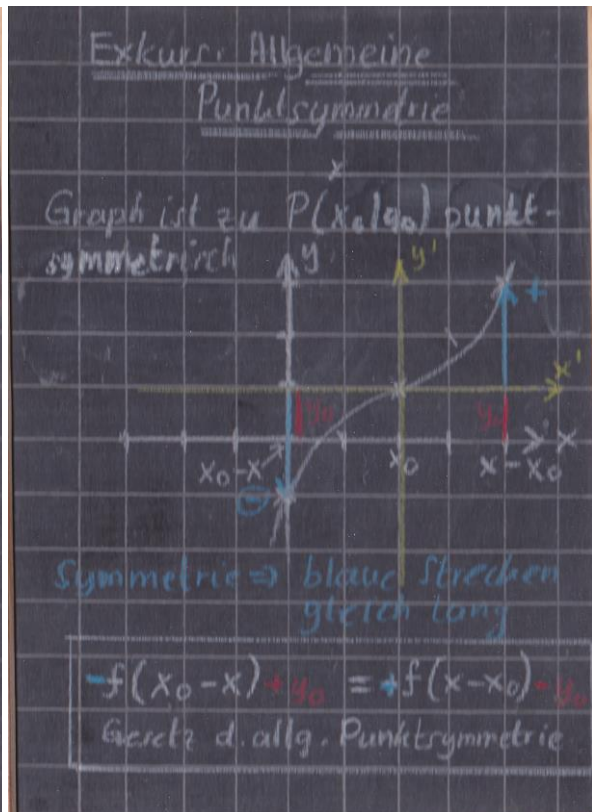 Exkurs: Allgemeine
Punktsymmetrie
x
Graph ist zu P(x₀|y₀) punkt-
symmetrisch
y
y'
+
x'
y₀
y₀
x₀-x
x₀
x-x₀
x
-
Symmetrie => blaue Strecken
gleich lang
-f(x₀-x)+y₀ = +f(x-x₀)-y₀
Gesetz d. allg. Punktsymmetrie